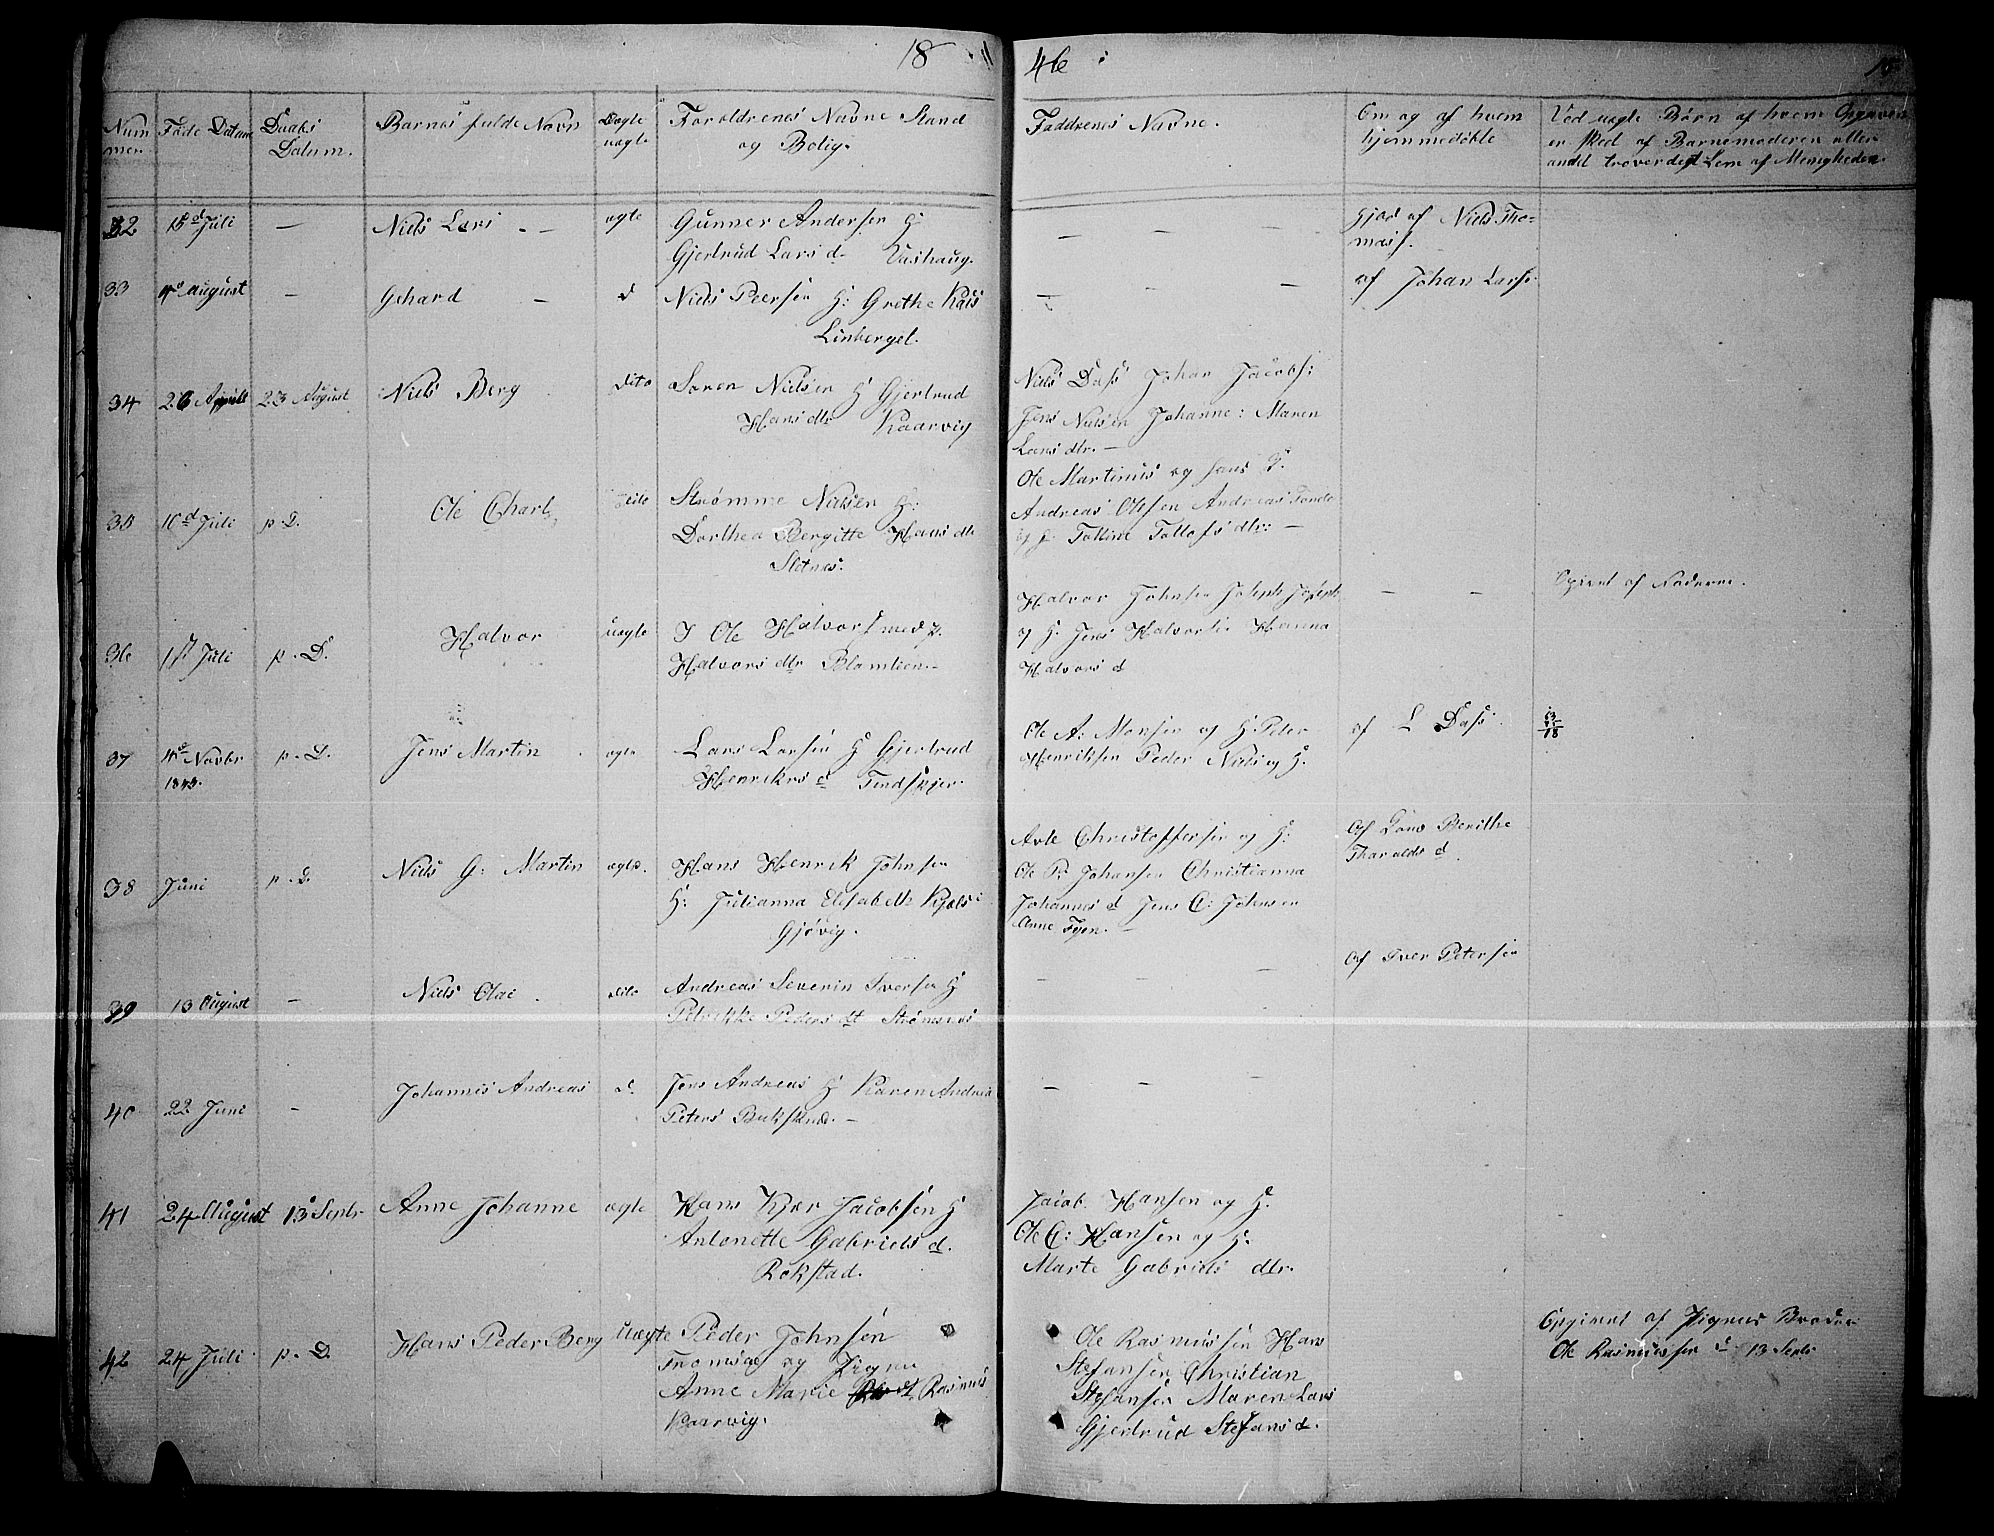 18
46
18
Nummer
Føde Datum
Daabs Datum.
Barnes fulde Navn
Ægte uægte
Foraldrenes Navne Stand
og Bolig.
Faddrenes Navne.
Om og af hvem
hjemmedøbte
Ved uægte Børn af hvem Opgaven
er sked af Barnemoderen eller
andet troverdigt Lem af Menigheden.
32 15d Juli — Niels Lars - - ægte Gunner Andersen H
Gjertrud Lars d. Vashaug.
— — —
Gjød af Niels Tho-
mas.
33 4d august — Gehard — d Niels Peersen H: Grethe
Linbergel.
— — af Johan Lars.
34 26 April 23 August Niels Berg dito Søren Nielsen H Gjertrud
Hans dtr Kaarvig
Niels Dass Johan Jacobs:
Jens Nielsen Johanne: Maren
Lars dtr. —
35 10d Juli p. D. Ole Charl dito Strømme Nielsen H:
Dorthea Bergitte Hans dtr
Sletnes.
Ole Martinus og hans H.
Andreas Olesen Andreas
og H. Tolline Tollofs dtr: —
36 17 Juli p. D. Halvor uægte J Ole Halvors med p.
Halvors dtr Blomlien. —
Halvor Johnsen Joseph Joseph
og H. Jens Halvorsen Hanna
Halvors d
— —
Opgivet af Faderne.
37 4d Novbr
1845.
p. D. Jens Martin ægte Lars Larsen H Gjertrud
Henriks d Tindskjer.
Ole A: Monsen og H. Peder
Henriksen Peder Niels og H.
af L Dass.
13
18
38 Juni p. D Niels G: Martin ægte. Hans Henrik Johnsen
H: Julianna Elisabeth Kjels
Gjøvig.
Avle Christoffersen og H:
Ole P. Johansen Christianna
Johannes d Jens C: Johnsen
Anne Fyen. —
Af Benithe
Tharalds d.
39 13 August — Niels Olai dito Andreas Severin Iversen H
Petrikke Peders dt Strømsnes
— — Af Iver Petersen
40 22 Juni — Johannes Andreas d. Jens Andreas H Karen Andrea
Peters Buksknd. —
— — —
41 24 August 13 Septr Anne Johanne ægte Hans Kjer Jacobsen H
Antonette Gabriels d.
Rokstad.
Jacob Hansen og H.
Ole C: Hansen og H:
Marte Gabriels dtr.
42 24 Juli p. D. Hans Peder Berg Uægte Peder Johnsen
Tromsøe og Pigen
Anne Marie dt Rasmus
Kaarvig.
Ole Rasmussen Hans
Stefansen Christian
Stefansen Maren Lars
Gjertrud Stefans d.
Opgivet af Pigens Broder
Ole Rasmussen d. 13 Septr